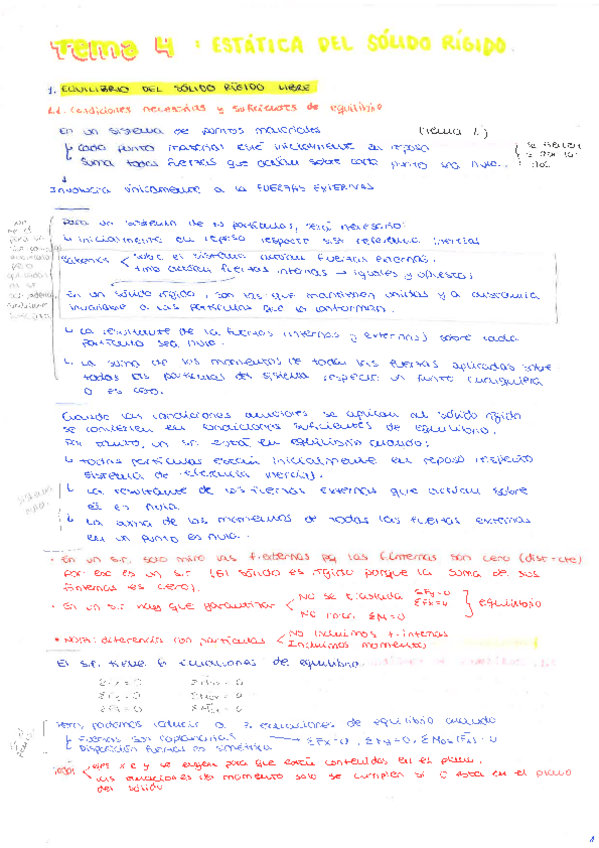 Tema 4 : ESTÁTICA DEL SÓLIDO RÍGIDO.
1. EQUILIBRIO DEL SÓLIDO RÍGIDO LIBRE
1.1. Condiciones necesarias y suficientes de equilibrio
En un sistema de puntos materiales (Tema 2)
↳ Cada punto material esté inicialmente en reposo
↳ Suma todas fuerzas que actúan sobre cada punto sea nula.
Involucra únicamente a la FUERZAS EXTERNAS
Para un sistema de n partículas, será necesario:
↳ inicialmente en reposo respecto sist referencia inercial
Sabemos < sobre el sistema actúan fuerzas externas.
actúan fuerzas internas → iguales y opuestas
En un sólido rígido, son las que mantienen unidas y a distancia
invariable a las partículas que lo conforman.
↳ La resultante de la fuerzas (internas y externas) sobre cada
partícula sea nula.
↳ La suma de los momentos de todas las fuerzas aplicadas sobre
todas las partículas del sistema respecto un punto cualquiera
0 es cero.
Cuando las condiciones anteriores se aplican al sólido rígido
se convierten en condiciones suficientes de equilibrio.
Por tanto, un s.r. está en equilibrio cuando:
↳ todas partículas están inicialmente en reposo respecto
sistema de referencia inercial.
↳ La resultante de las fuerzas externas que actúan sobre
él es nula.
↳ La suma de los momentos de todas las fuerzas externas
en un punto es nula.
• En un s.r. solo miro las f. externas pq las f. internas son cero (dist=cte)
por eso es un s.r. (El sólido es rígido porque la suma de sus
internas es cero).
• En un s.r hay que garantizar < No se traslada ΣFy=0 ΣFx=0
No rota. ΣM=0 ] equilibrio
* NOTA: diferencia con partículas < No incluimos f. internas
Incluimos momentos
El s.r. tiene 6 ecuaciones de equilibrio.
ΣFx = 0 ΣMox = 0
ΣFy = 0 ΣMoy = 0
ΣFz = 0 ΣMoz = 0
podemos reducir a 3 ecuaciones de equilibrio cuando
↳ Fuerzas son coplanarias
↳ Disposición fuerzas es simétrica → ΣFx=0, ΣFy=0, ΣMoz
ejes x e y se eligen para que estén contenidas en el plano.
las ecuaciones del momento solo se cumplen si O está en el plano
del sólido